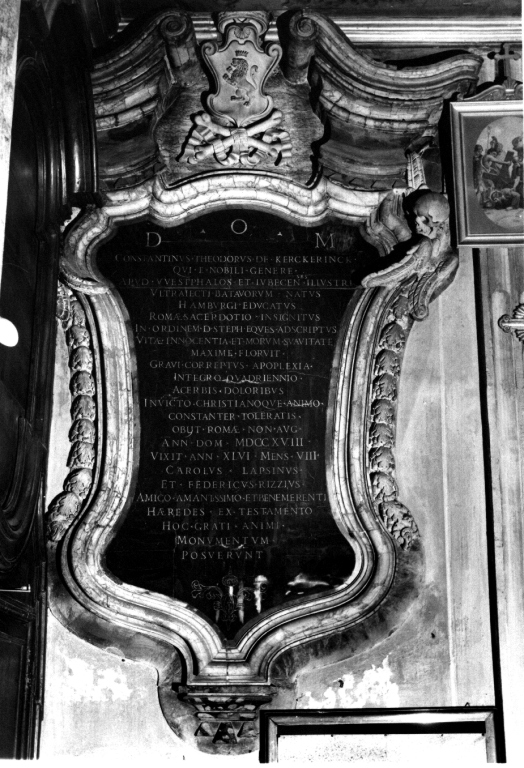 D · O · M
CONSTANTINVS·THEODORVS·DE·KERCKERINCK·
QVI·E·NOBILI·GENERE·
APVD·VVESTPHALOS·ET·IVBECEN·ILLVSTRI
VLTRAIECTI·BATAVORVM·NATVS
HAMBVRGI·EDVCATVS
ROMÆ·SACERDOTIO·INSIGNITVS
IN·ORDINEM·D·STEPH·EQVES·ADSCRIPTVS
VITÆ·INNOCENTIA·ET·MORVM·SVAVITATE
MAXIME·FLORVIT·
GRAVI·CORREPTVS·APOPLEXIA·
INTEGRO·QVADRIENNIO·
ACERBIS·DOLORIBVS
INVICTO·CHRISTIANOQVE·ANIMO·
CONSTANTER·TOLERATIS·
OBIIT·ROMÆ·NON·AVG·
ANN·DOM·MDCCXVIII·
VIXIT·ANN·XLVI·MENS·VIII·
CAROLVS·LAPSINVS·
ET·FEDERICVS·RIZZIVS
AMICO·AMANTISSIMO·ET·BENEMERENTI
HÆREDES·EX·TESTAMENTO
HOC·GRATI·ANIMI·
MONVMENTVM·
POSVERVNT